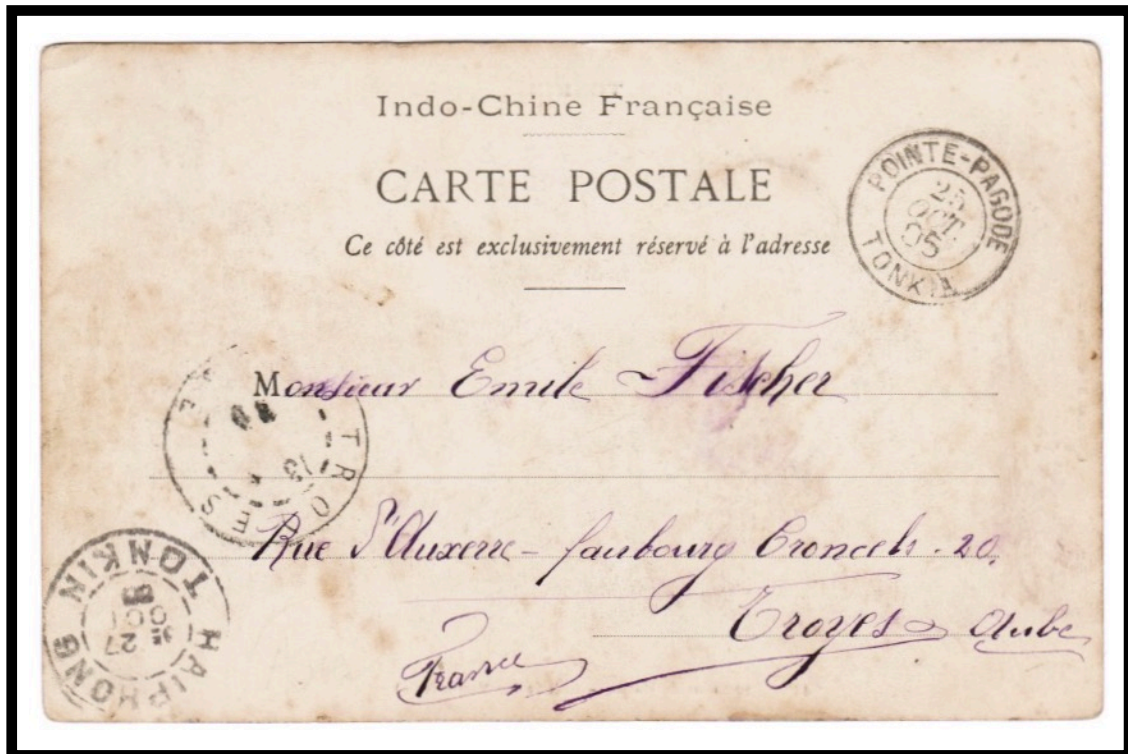 Indo-Chine Française
CARTE POSTALE
Ce côté est exclusivement réservé à l'adresse
POINTE-PAGODE
25
OCT
05
TONKIN
Monsieur Emile Fischer
TROYES
Rue d'Auxerre - faubourg Croncels . 20.
Troyes Aube
France
HAIPHONG
TONKIN
27
OCT